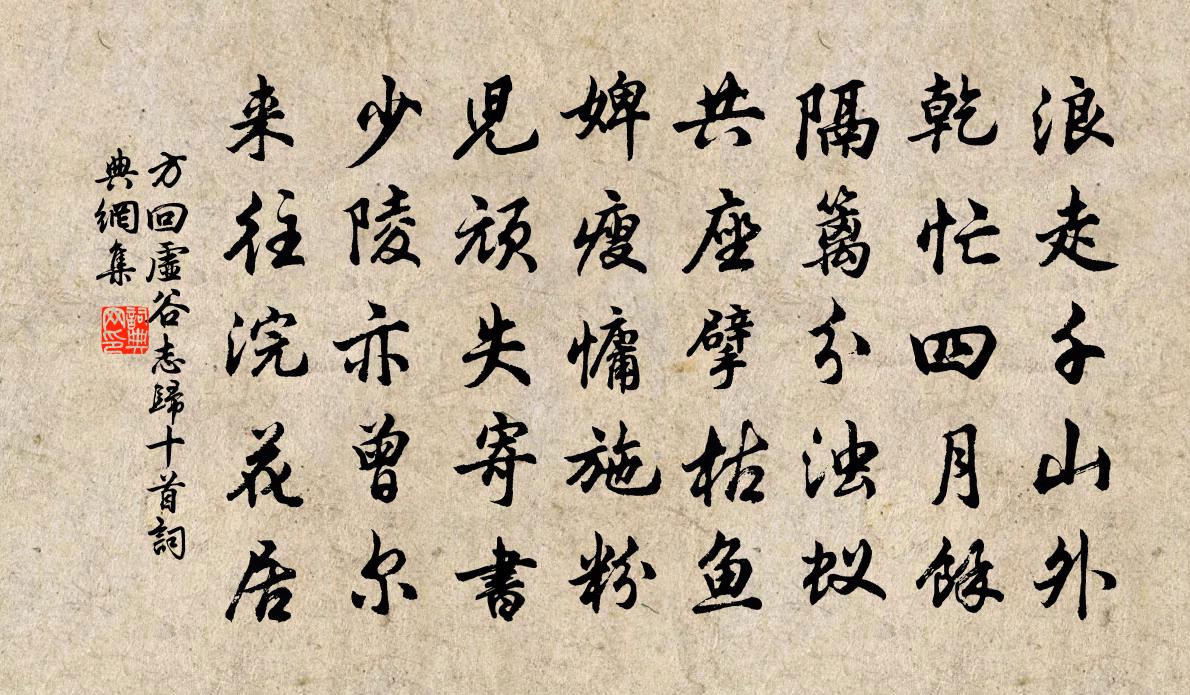 浪走千山外
乾忙四月馀
隔篱分浊蚁
共座擘枯鱼
婢瘦慵施粉
児頑失寄書
少陵亦曾尔
来往浣花居
方回虛谷志歸十首詞
典網集
詞典
网印